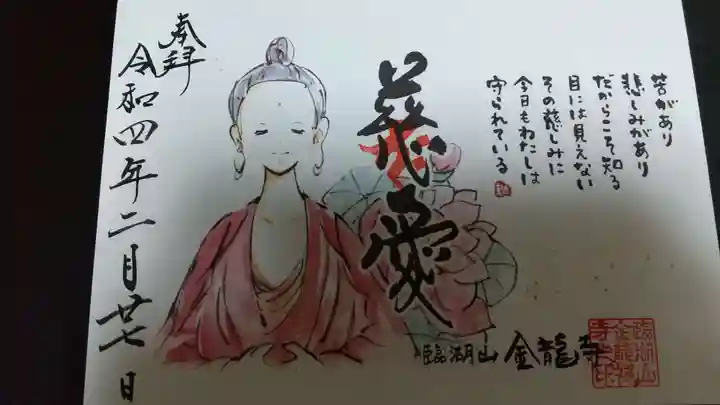 苦があり
悲しみがあり
だからこそ知る
目には見えない
その慈しみに
今日もわたしは
守られている
慈愛
奉拝
令和四年二月廿七日
臨湖山 金龍寺